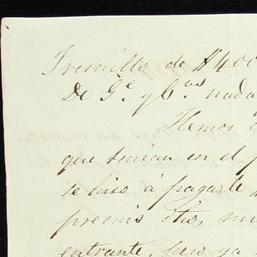 Trujillo de $400
De Ge. y Ca. nada
Hemos
que tenian en el
se hizo á pagarle
premio otro,
entrante, pero ya